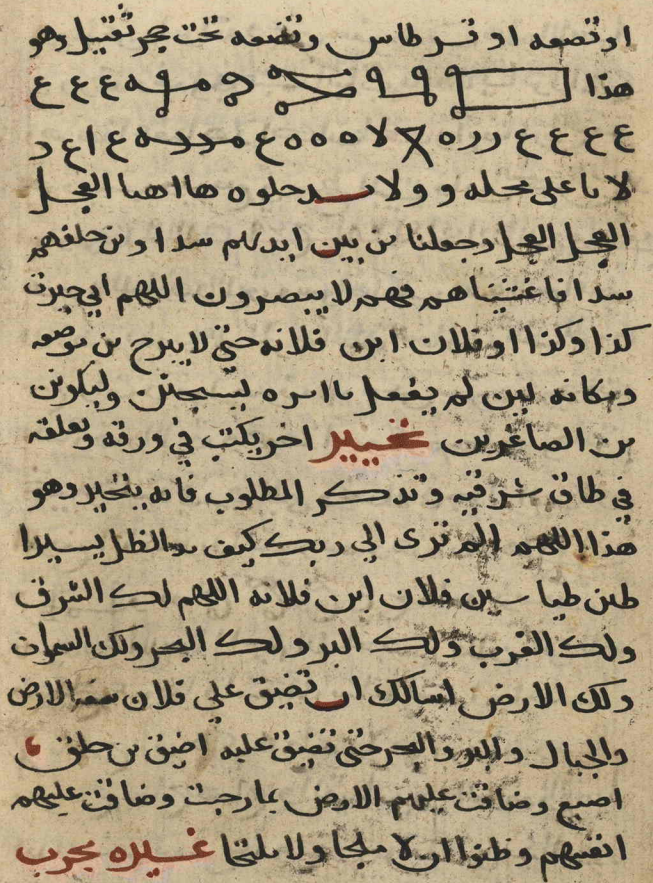 او تضعه او قرطاس وتضعه تحت حجر ثقيل وهو
هذا ع ع ع
ع ع ع ع ررہ لا ه ه ه ع ع ا ع د
لا ىا على محله و ولا حلوه هااهىا العجل
العجل العجل وجعلنا من بين ايديهم سدا ومن خلفهم
سدا فاغشيناهم فهم لا يبصرون اللهم اني حيرت
كذا وكذا او فلان ابن فلانه حتى لا يبرح من موضعه
ومكانه ليىن لم يفعل ماامره ليسجنن وليكونن
من الصاغرين غيره اخر يكتب في ورقه وتعلقه
في طاق شرقيه وتذكر المطلوب فانه يتحير وهو
هذا اللهم الم ترى الي ربك كيف مد الظل يسيرا
طىن طيا سىن فلان ابن فلانه اللهم لك الشرق
ولك الغرب ولك البر ولك البحر ولك السموات
ولك الارض اسالك ان تضيق علي فلان هذه الارض
والجبال والبر والبحر حتى تضيق عليه اضيق من حلقة
اصبع وضاقت عليهم الارض بمارحبت وضاقت عليهم
انفسهم وظنوا ان لا ملجا ولا ملتجا غيره مجرب